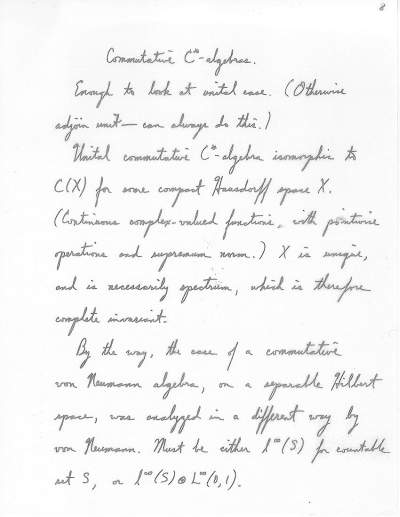 8
Commutative C*-algebras.
Enough to look at unital case. (Otherwise
adjoin unit — can always do this.)
Unital commutative C*-algebra isomorphic to
C(X) for some compact Hausdorff space X.
(Continuous complex-valued functions, with pointwise
operations and supremum norm.) X is unique,
and is necessarily spectrum, which is therefore
complete invariant.
By the way, the case of a commutative
von Neumann algebra, on a separable Hilbert
space, was analyzed in a different way by
von Neumann. Must be either l^∞(S) for countable
set S, or l^∞(S) ⊕ L^∞(0,1).